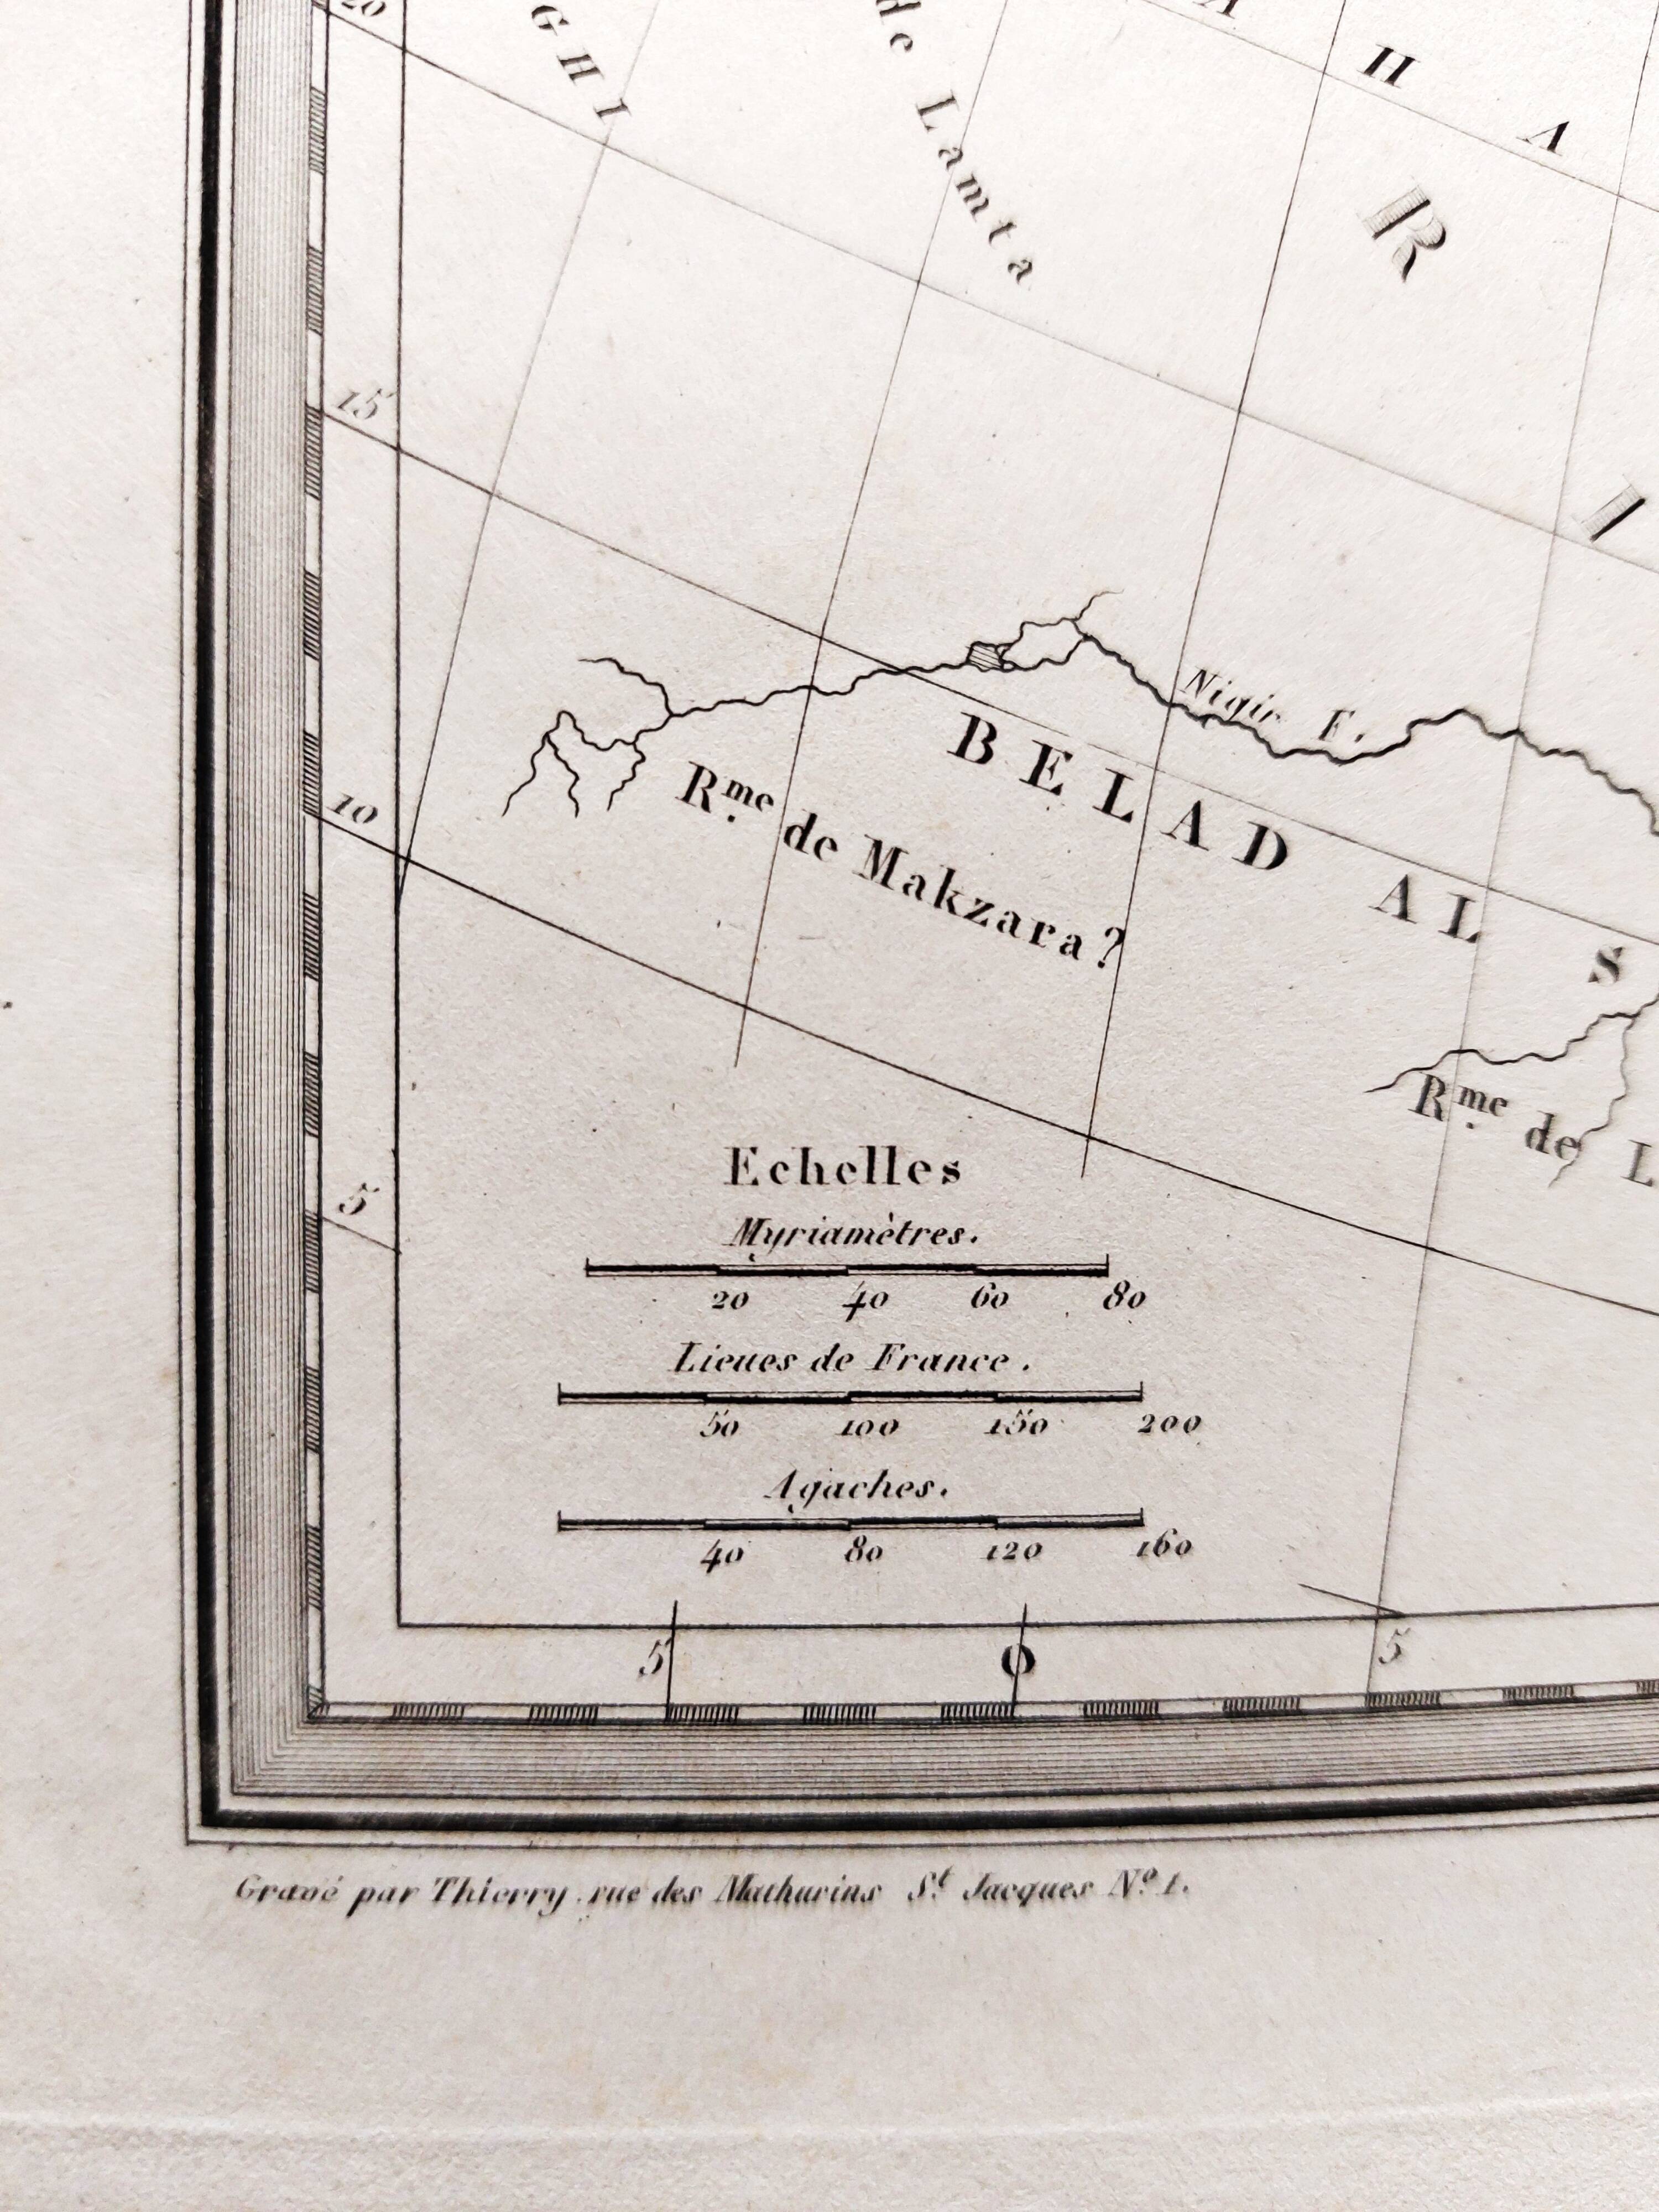 20
GHI
de Lamta
H A
R
I
15
Nigir F.
BELAD AL S
10
Rme. de Makzara?
Rme. de L
5
Echelles
Myriamètres.
20 40 60 80
Lieues de France.
50 100 150 200
Agaches.
40 80 120 160
5 0 5
Gravé par Thierry. rue des Mathurins St. Jacques No. 1.